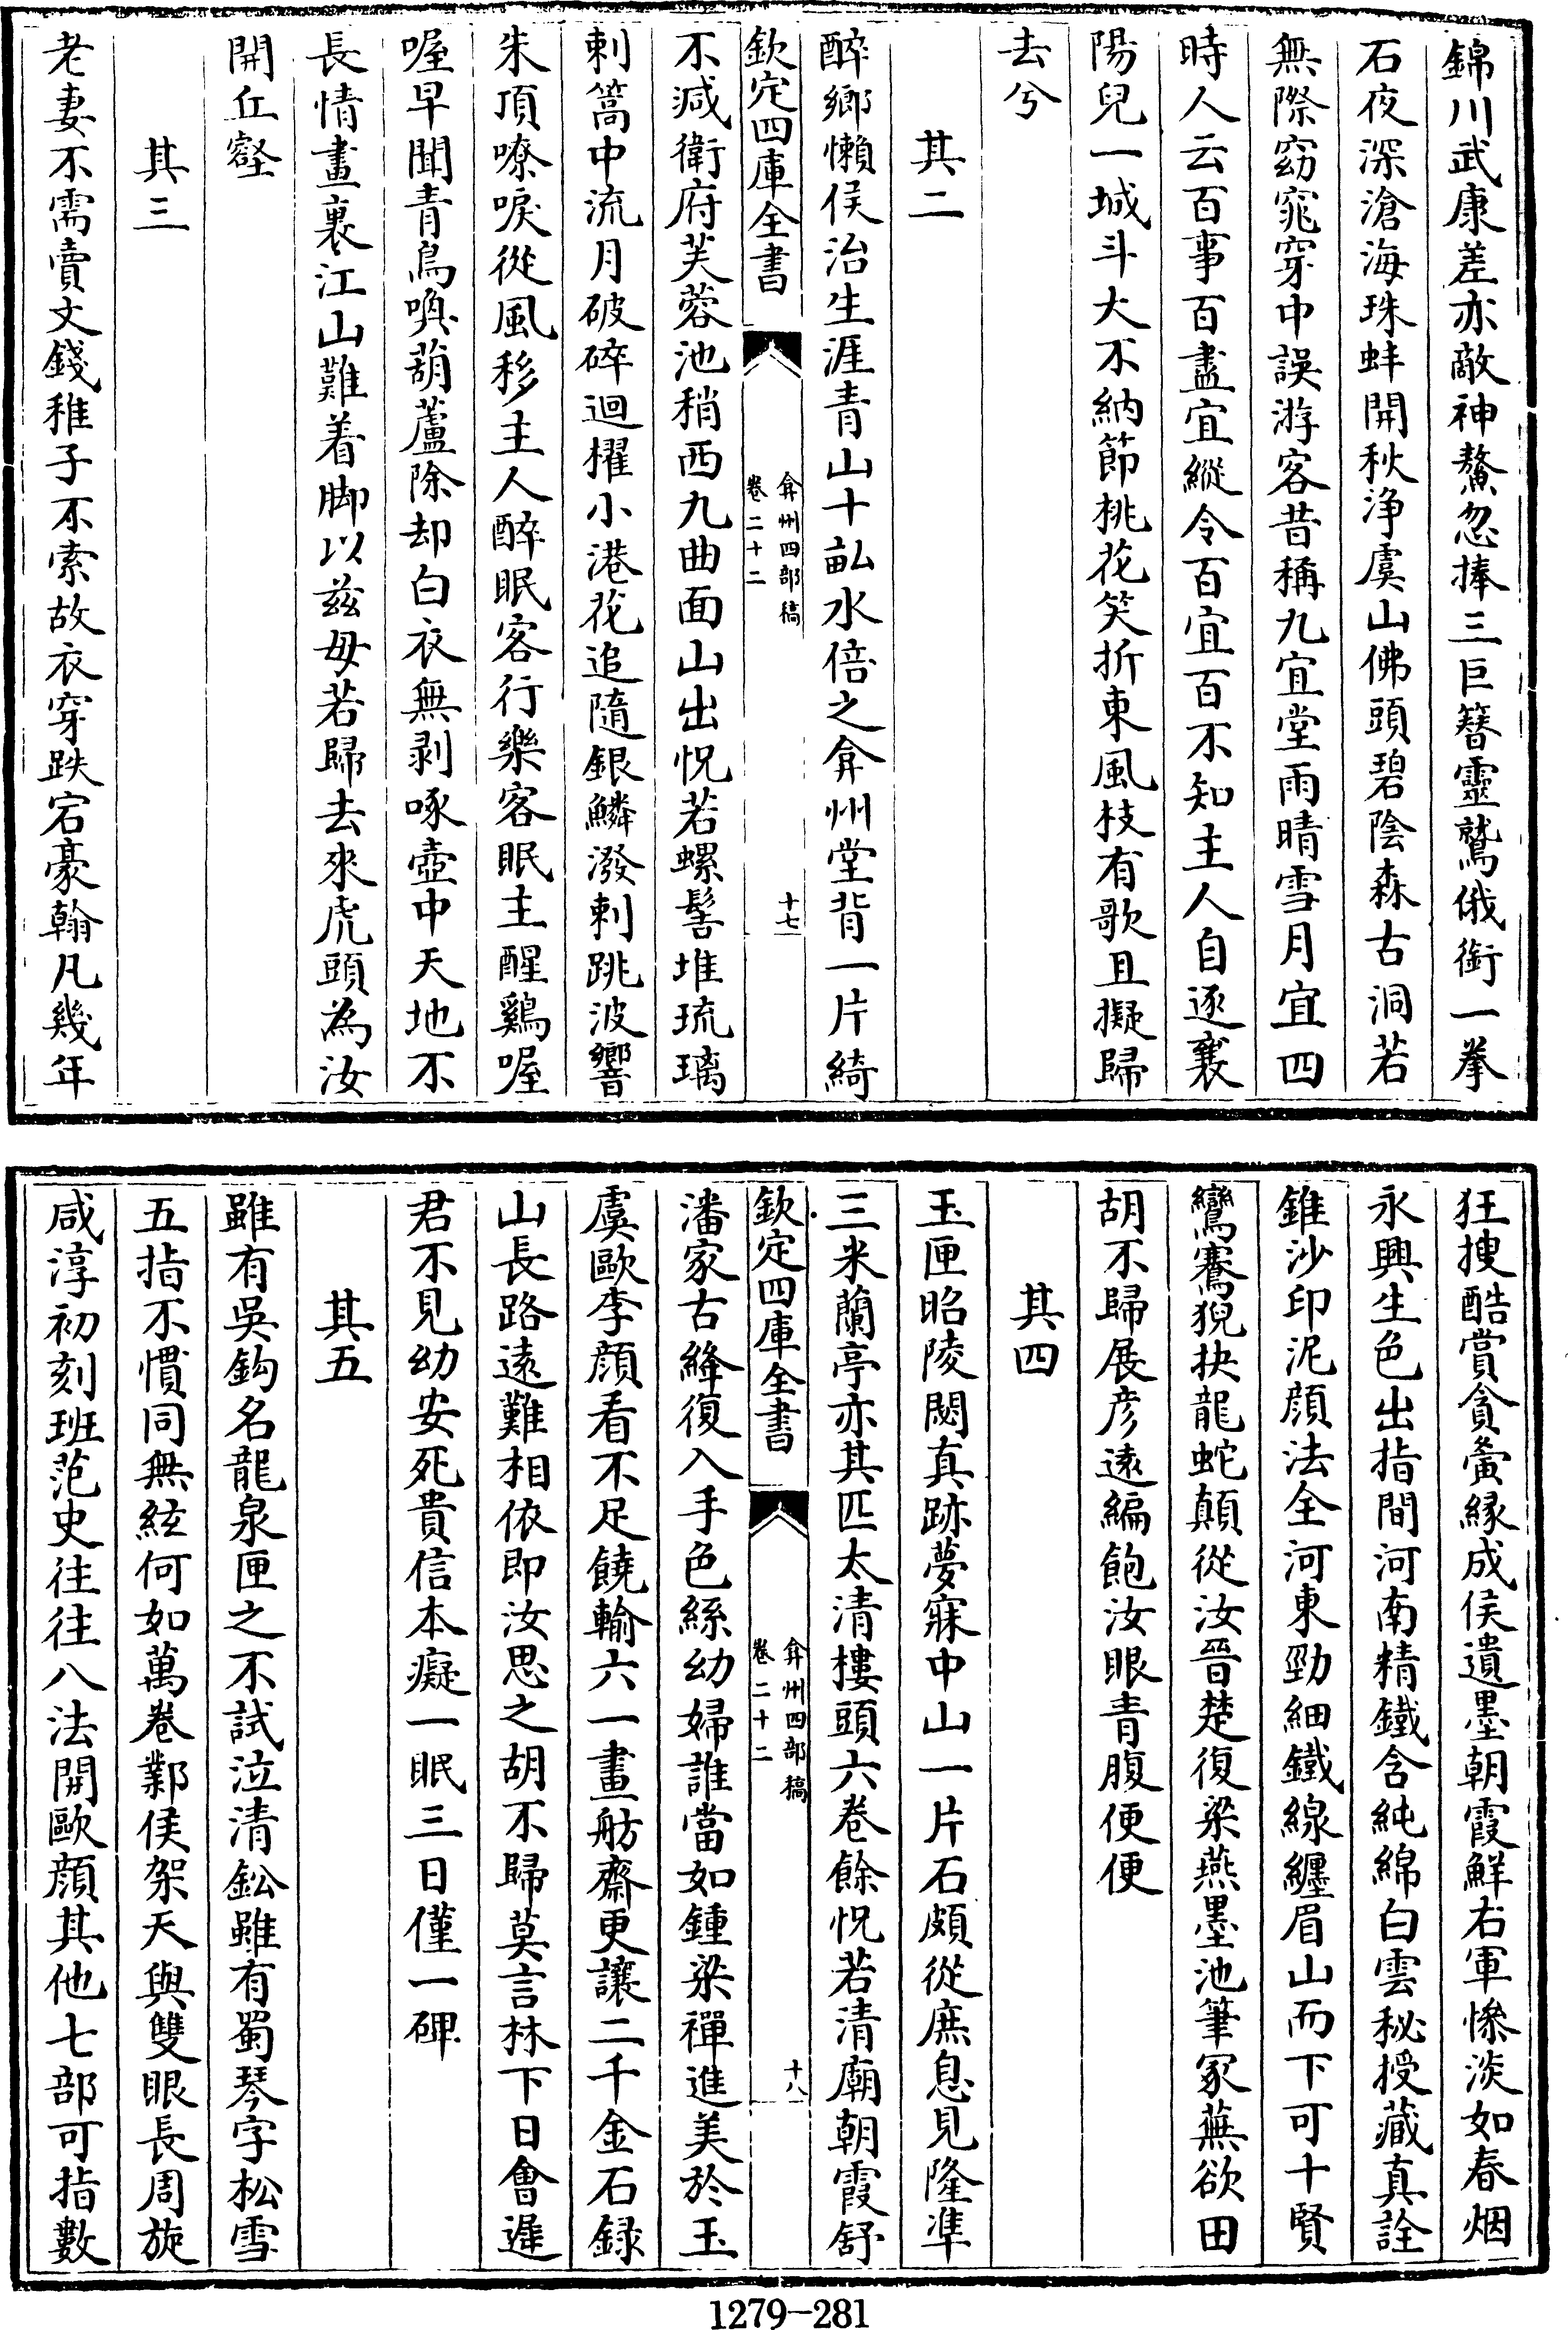 錦川武康差亦敵神鰲忽捧三巨簪靈鷲俄銜一拳
石夜深滄海珠蚌開秋浄虞山佛頭碧陰森古洞若
無際窈窕穿中誤游客昔稱九宜堂雨晴雪月宜四
時人云百事百盡宜縱令百宜百不知主人自逐襄
陽兒一城斗大不納節桃花笑折東風枝有歌且擬歸
去兮
其二
醉鄉懶侯治生涯青山十畝水倍之弇州堂背一片綺
欽定四庫全書
弇州四部稿
卷二十二
十七
不減衛府芙蓉池稍西九曲面山出怳若螺髻堆琉璃
刺篙中流月破碎迴櫂小港花追隨銀鱗潑剌跳波響
朱頂嘹唳從風移主人醉眠客行樂客眠主醒鷄喔
喔早聞青鳥喚葫蘆除却白衣無剥啄壺中天地不
長情畫裏江山難着脚以兹毋若歸去來虎頭為汝
開丘壑
其三
老妻不需賣文錢稚子不索故衣穿跌宕豪翰凡幾年
狂搜酷賞貪夤緣成侯遺墨朝霞鮮右軍慘淡如春烟
永興生色出指間河南精鐵含純綿白雲秘授藏真詮
錐沙印泥顔法全河東勁細鐵線纏眉山而下可十賢
鸞騫猊抉龍蛇顛從汝晉楚復梁燕墨池筆冢蕪欲田
胡不歸展彦遠編飽汝眼青腹便便
其四
玉匣昭陵閟真跡夢寐中山一片石頗從庶息見隆準
三米蘭亭亦其匹太清樓頭六卷餘怳若清廟朝霞舒
欽定四庫全書
弇州四部稿
卷二十二
十八
潘家古絳復入手色絲幼婦誰當如鍾梁禪進美於玉
虞歐李顔看不足饒輸六一畫舫齋更讓二千金石録
山長路遠難相依即汝思之胡不歸莫言林下日會遲
君不見幼安死貴信本癡一眠三日僅一碑
其五
雖有吳鈎名龍泉匣之不試泣清鈆雖有蜀琴字松雪
五指不慣同無絃何如萬卷鄴侯架天與雙眼長周旋
咸淳初刻班范史往往八法開歐顔其他七部可指數
1279—281